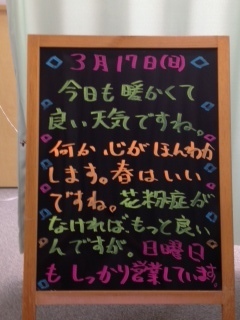 3月17日(日)
今日も暖かくて
良い天気ですね。
何か心がほんわか
します。春はいい
ですね。花粉症が
なければ、もっと良い
んですが。日曜日
もしっかり営業しています。